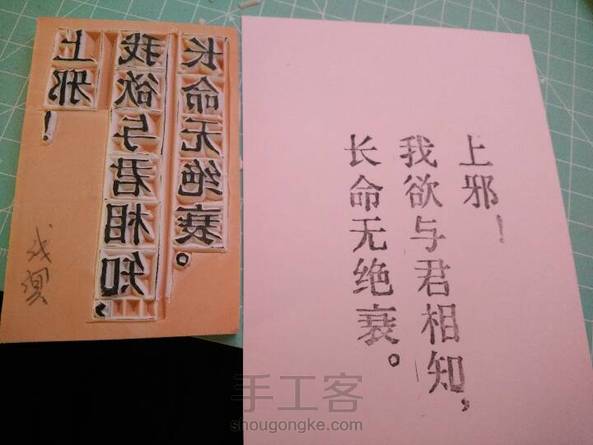 上邪！
我欲与君相知，
长命无绝衰。
上邪！
我欲与君相知，
长命无绝衰。
手工客
shougongke.com